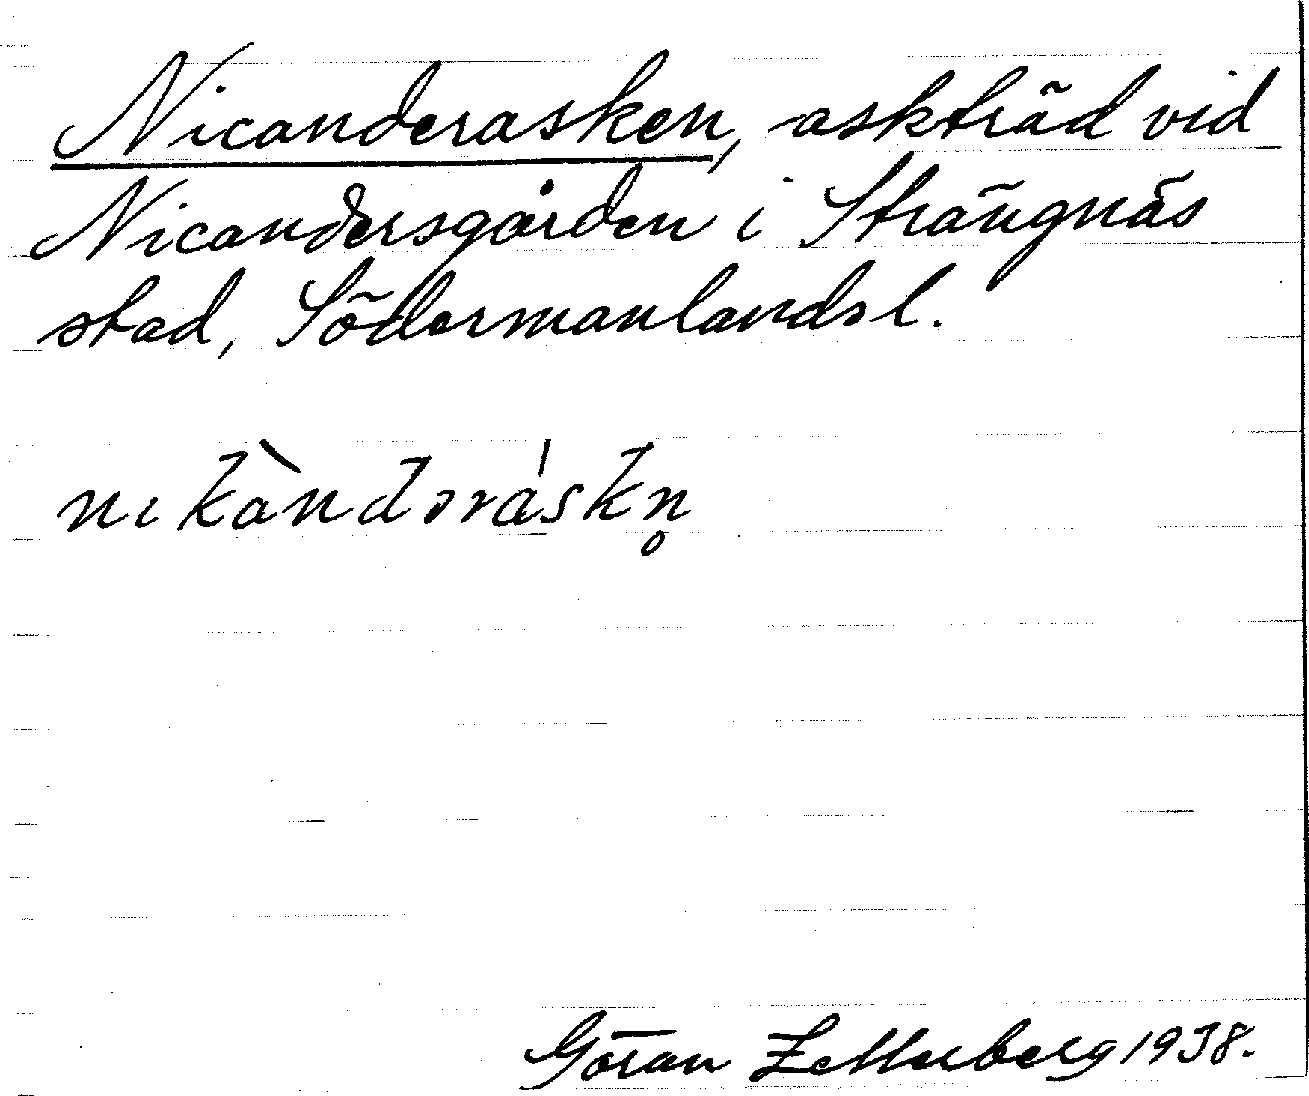 Nicanderasken, askträd vid
Nicandersgården i Strängnäs
stad, Södermanlandsl.
nıkàndəráskn̥
Göran Zetterberg 1938.